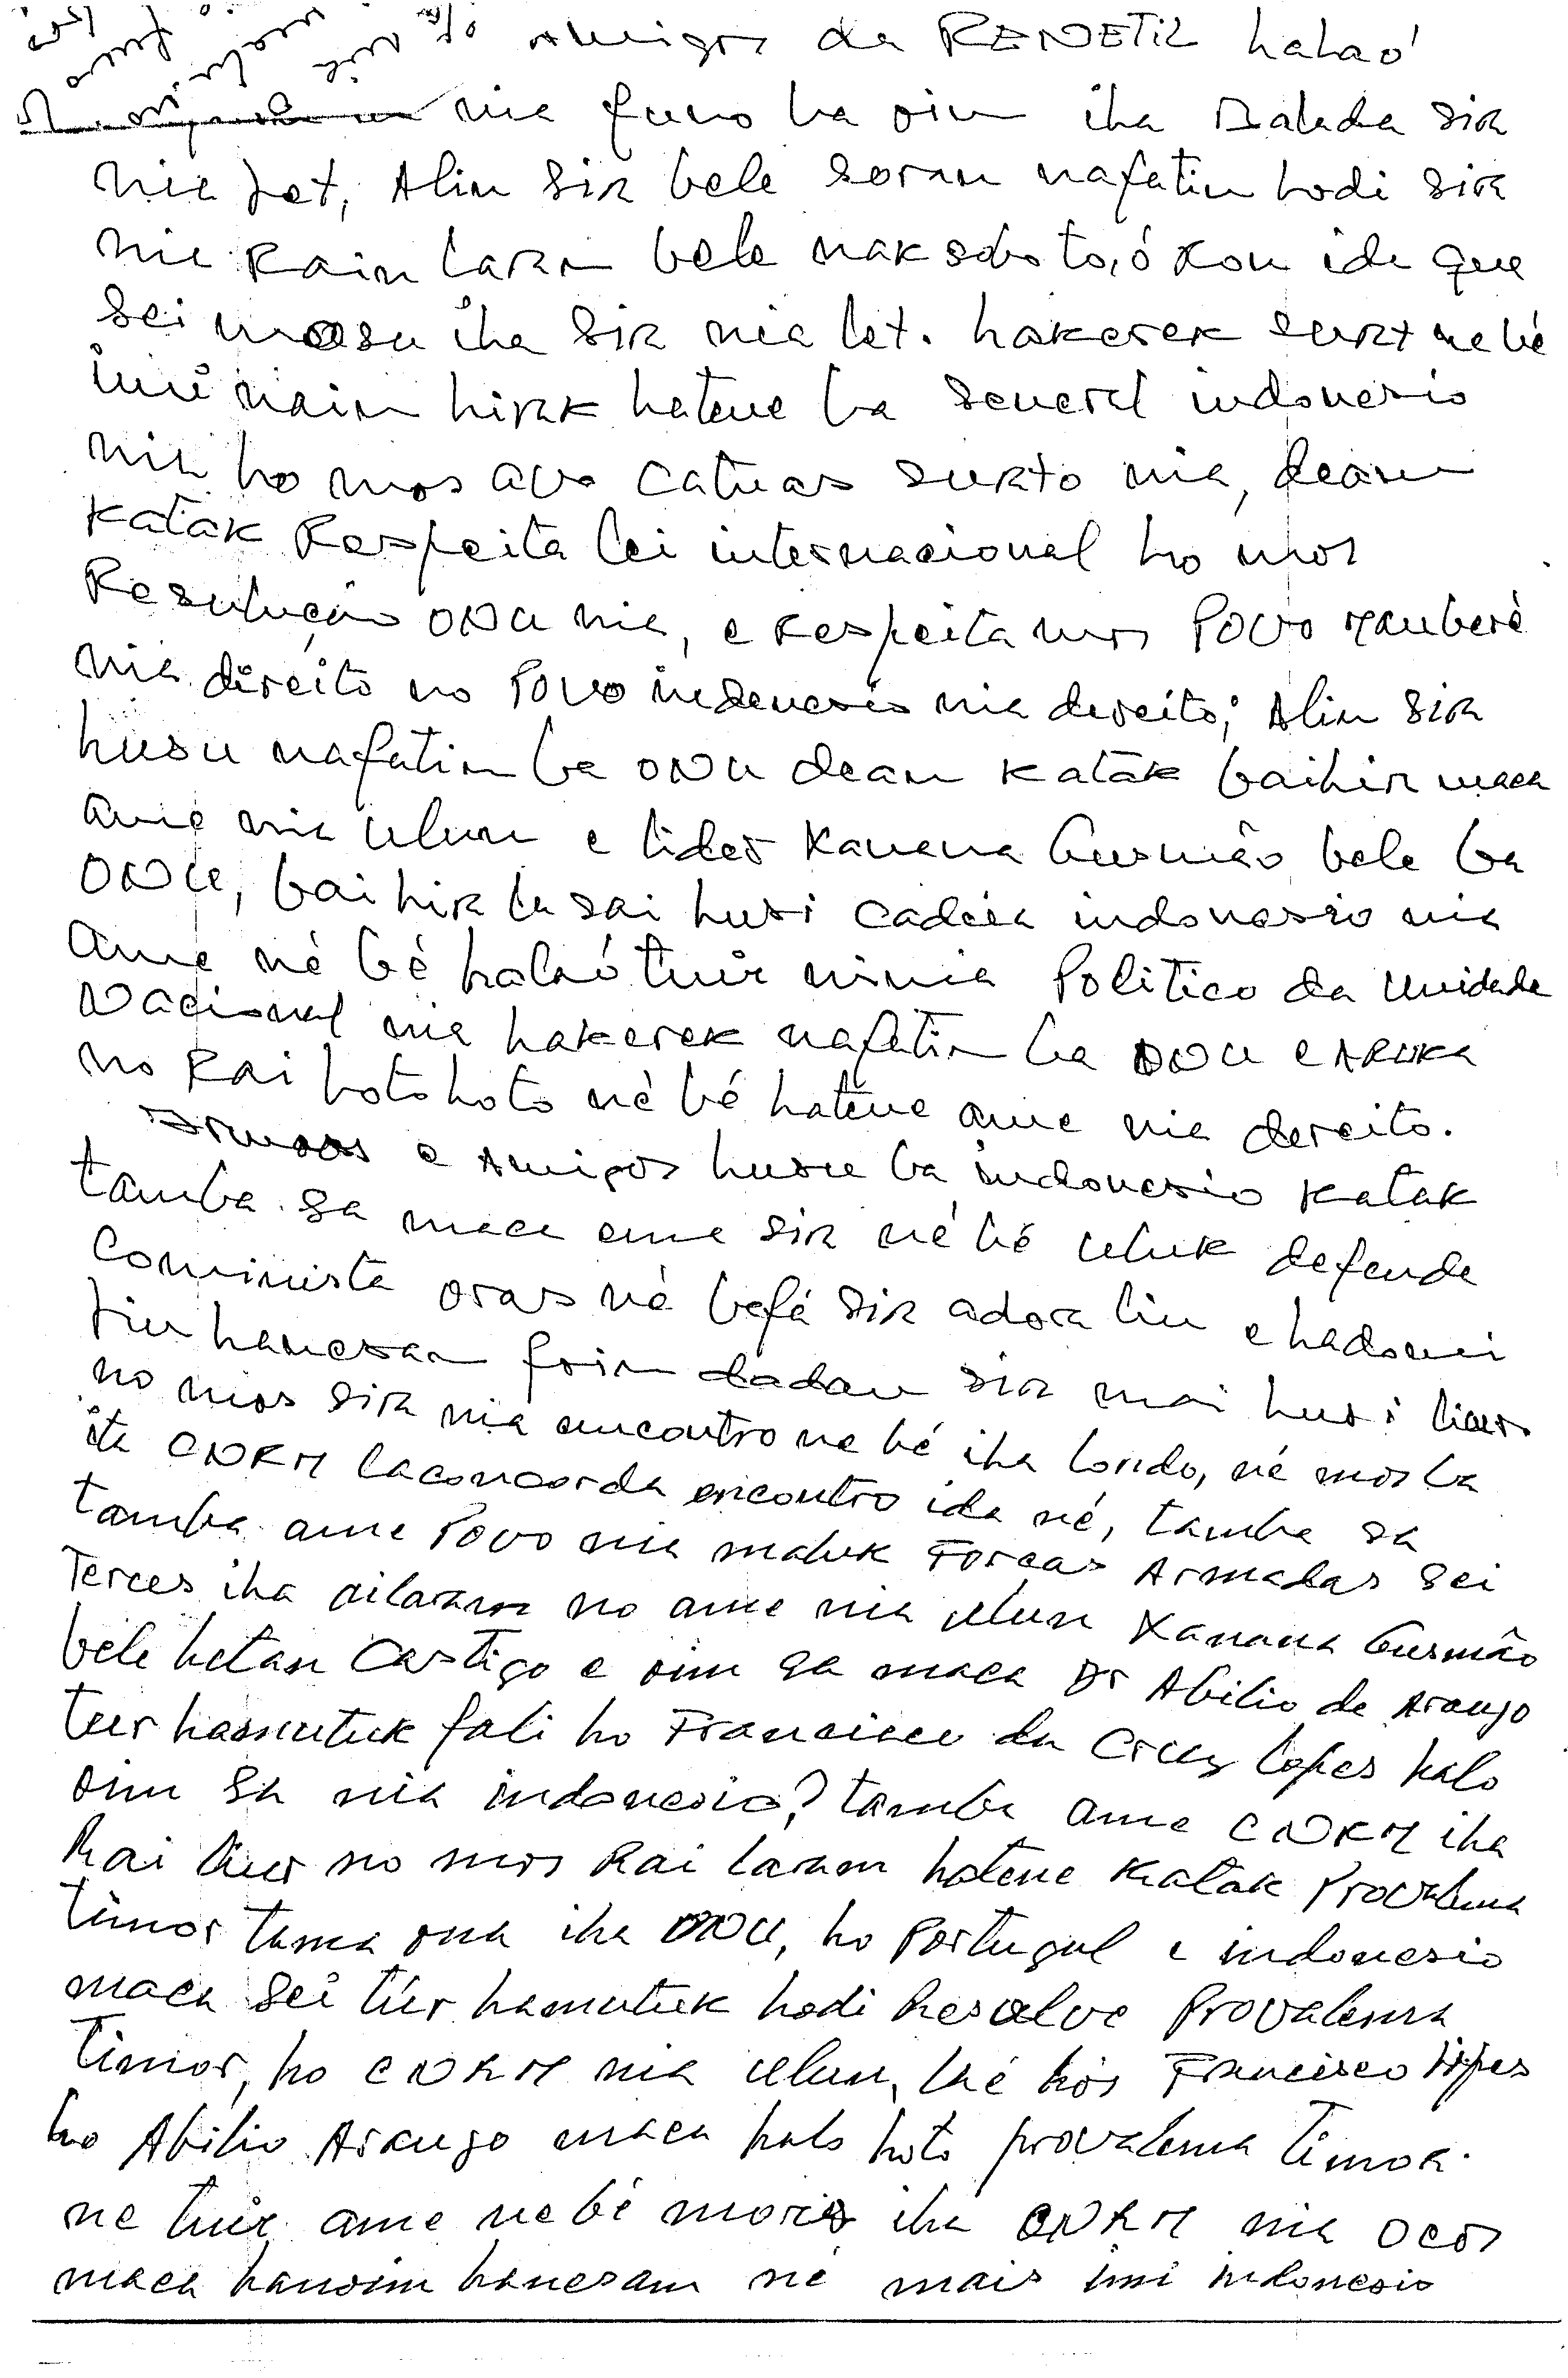 Amigos da RENETIL halaó
nia funo ba oin iha Balada sira
nia let, Alin sira bele soran nafatin hodi sira
nia Rain laran bele naksobo to,ó Kon ida que
sei moosu iha sira nia let. hakerek surat nebé
imi nain hirak hatene ba General indonesio
nia ho mos avo catuas surto nia, dean
katak Respeita lei internacional ho mos
Resulução ONU nia, e respeita mos Povo Mauberè
nia direito no Povo indenesio nia dereito; Alin sira
husu nafatin ba ONU dean katak baihira maca
ame nia ulun e lider Xanana Gusmão bele ba
ONU, baihira la sai husi cadeia indonesio nia
Ame nè bè halaó tuir ninia Politico da Unidade
Nacional nia hakerek nafatin ba ONU e
no Rai hotohoto nè bé hatene ame nia dereito.
Irmaos e Amigos husu ba indonesio katak
tamba sa maca ema sira né bé uluk defende
Cominista oras nè befá sira adora liu e hadomi
liu hanesan foin dadau sira mai husi liur
no mos sira nia encontro ne bé iha londo, né mos ba
ita CNRM laconcorda encontro ida né, tamba sa
tamba ame Povo nia maluk Forcas Armadas sei
Terces iha ailaran no ame nia ulun Xanana Gusmão
bele hetan Castigo e oin sa maca Dr Abilio de Araujo
tur hamutuk fali ho Francisco da Cruz lopes halo
oin sa nia indonesio? tamba ame CNRM iha
Rai liur no mos Rai laran hatene katak Provalema
timor tama ona iha ONU, ho Portugal e indonesio
maca sei túr hamutuk hodi Resolve Provalema
Timor, ho CNRM nia ulun, lhé hós Francisco lopes
ho Abilio Araujo maca halo hoto provalema Timor.
ne tuir ame nebé moris iha CNRM nia ocos
maca hanoin hanesan né mais imi indonesio